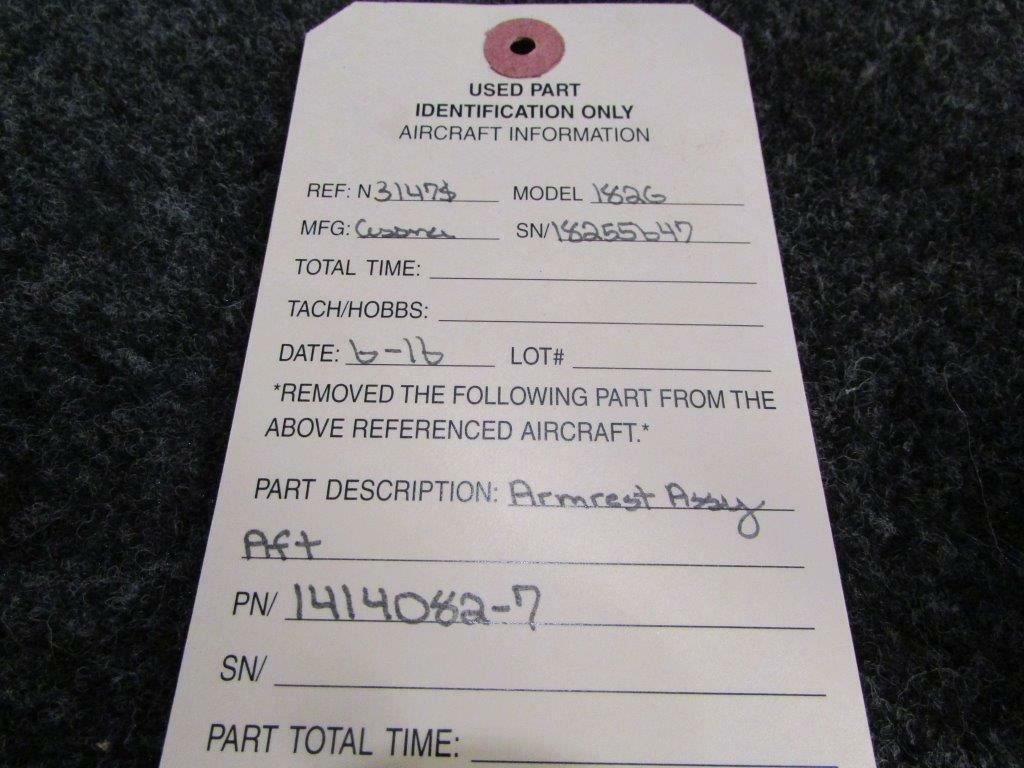 USED PART
IDENTIFICATION ONLY
AIRCRAFT INFORMATION
REF: N3147S MODEL 182G
MFG: Cessna SN/18255647
TOTAL TIME:
TACH/HOBBS:
DATE: 6-16 LOT#
*REMOVED THE FOLLOWING PART FROM THE
ABOVE REFERENCED AIRCRAFT.*
PART DESCRIPTION: Armrest Assy
Aft
PN/ 1414082-7
SN/
PART TOTAL TIME: